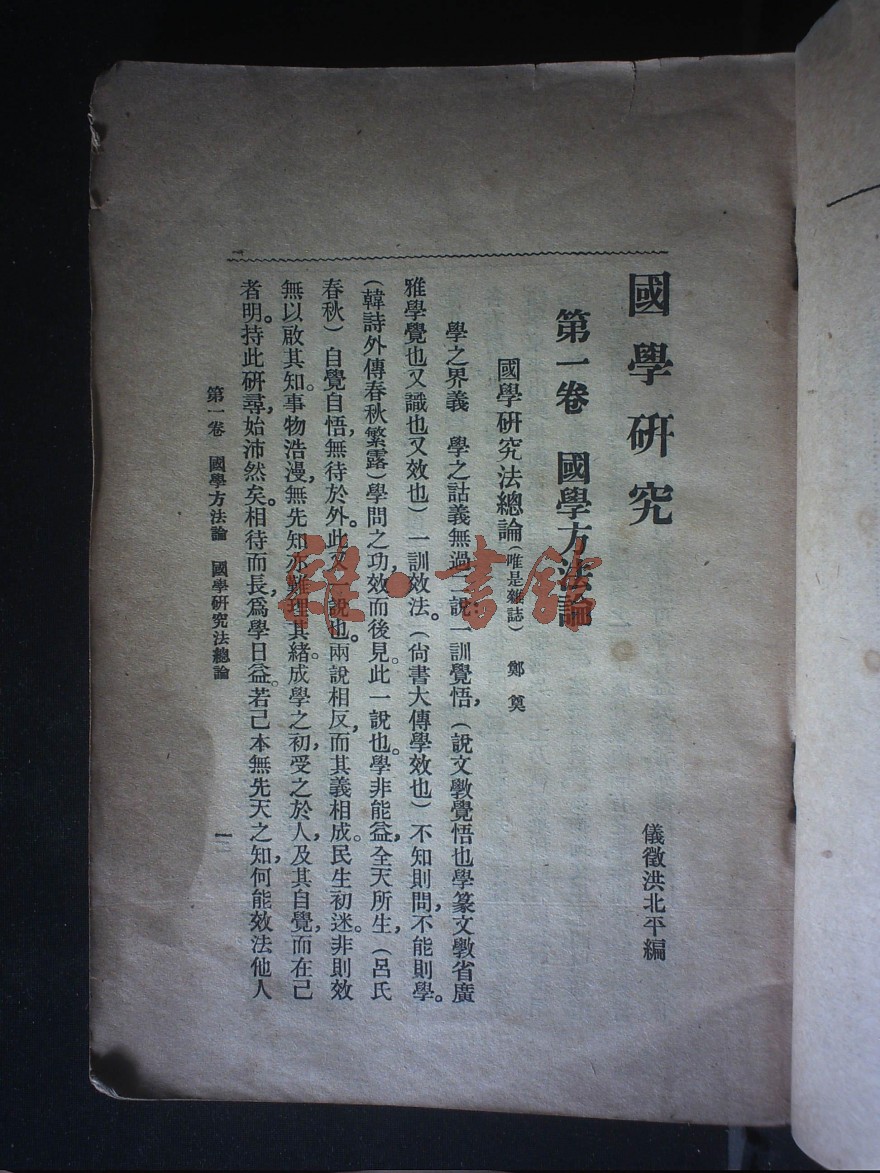 國學研究
儀徵洪北平編
第一卷　國學方法論
國學研究法總論（唯是雜誌）　鄭奠
學之界義　學之詁義無過二說：一訓覺悟，（說文斆覺悟也學篆文斆省廣
雅學覺也又識也又效也）一訓效法。（尙書大傳學效也）不知則問，不能則學。
（韓詩外傳春秋繁露）學問之功，效而後見。此一說也。學非能益，全天所生，（呂氏
春秋）自覺自悟，無待於外。此又一說也。兩說相反，而其義相成。民生初迷。非則效
無以啟其知。事物浩漫，無先知亦難理其緒。成學之初，受之於人，及其自覺，而在己
者明。持此研尋，始沛然矣。相待而長，爲學日益。若己本無先天之知，何能效法他人
第一卷　國學方法論　國學研究法總論
一
雜·書館